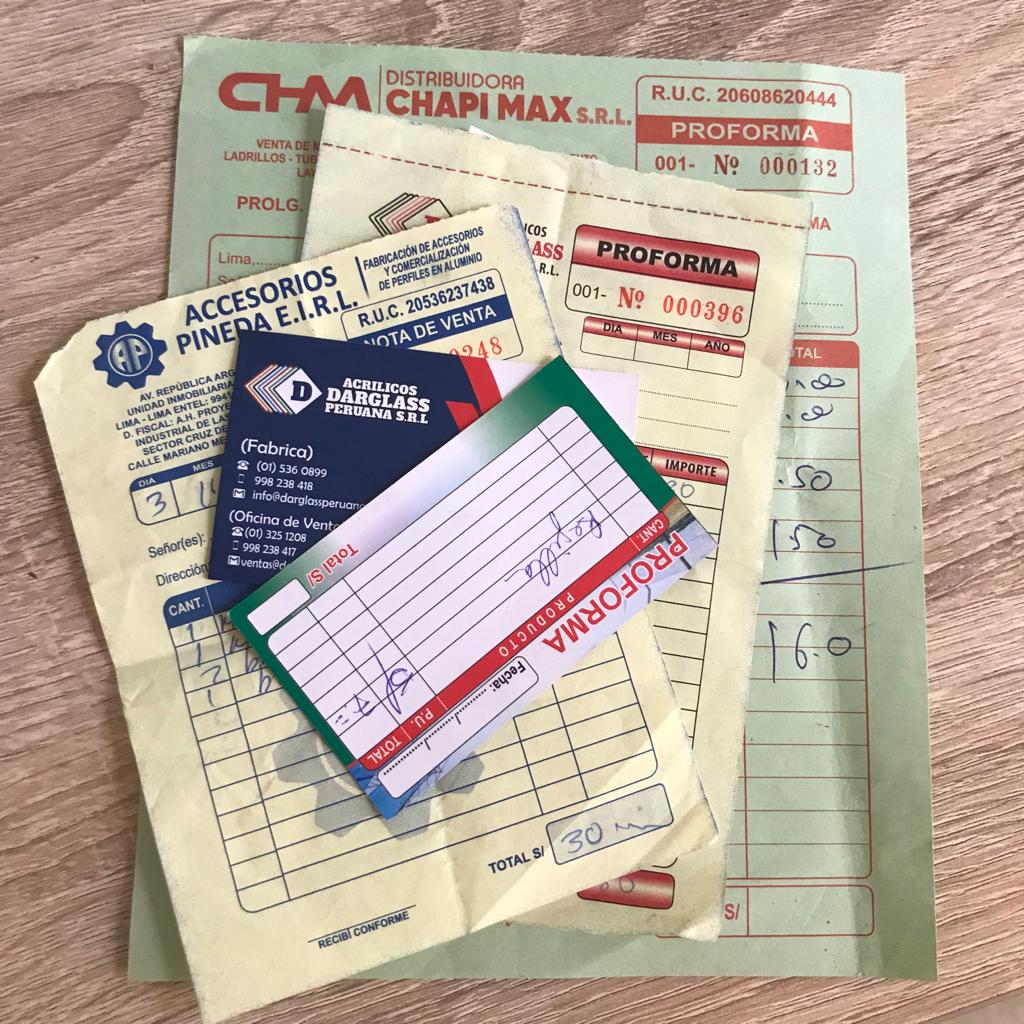 CHM
DISTRIBUIDORA
CHAPI MAX S.R.L.
R.U.C. 20608620444
PROFORMA
001- Nº 000132
VENTA DE
LADRILLOS - TUB
PROLG.
Lima,
TOTAL
.50
150
160
S/
D
ASS
R.L.
PROFORMA
001- Nº 000396
DIA MES AÑO
IMPORTE
ACCESORIOS
PINEDA E.I.R.L.
FABRICACIÓN DE ACCESORIOS
Y COMERCIALIZACIÓN
DE PERFILES EN ALUMINIO
R.U.C. 20536237438
NOTA DE VENTA
0248
AP
AV. REPÚBLICA ARG
UNIDAD INMOBILIARIA
LIMA - LIMA ENTEL: 994
D. FISCAL: A.H. PROYE
INDUSTRIAL DE LAS
SECTOR CRUZ DE
CALLE MARIANO ME
DIA MES
3 11
Señor(es):
Dirección
CANT.
1
1
2
1
TOTAL S/ 30
RECIBÍ CONFORME
D
ACRILICOS
DARGLASS
PERUANA S.R.L
(Fabrica)
(01) 536 0899
998 238 418
info@darglassperuan
(Oficina de Venta
(01) 325 1208
998 238 417
ventas@d
PROFORMA
Fecha:
CANT. PRODUCTO P.U. TOTAL
Total S/